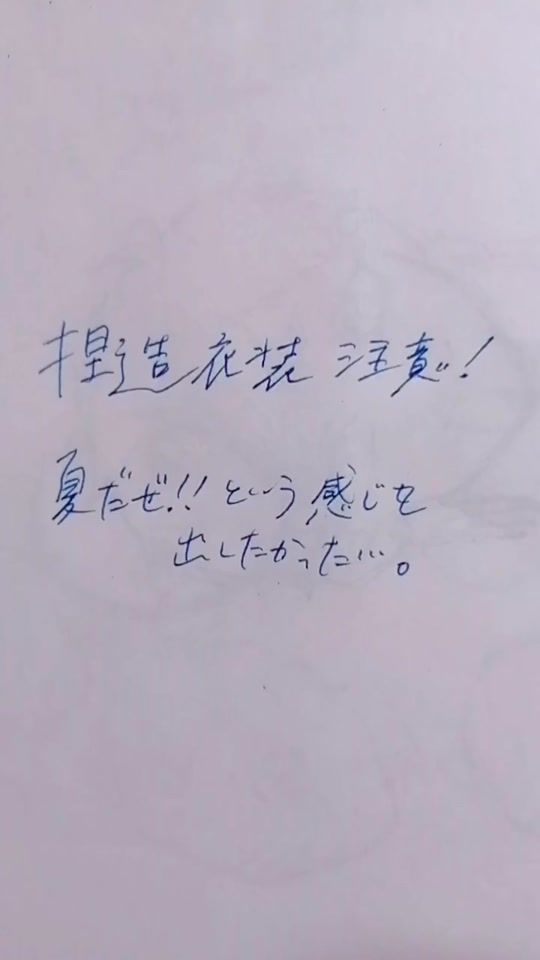 捏造衣装 注意!
夏だぜ!!という感じを
出したかった…。